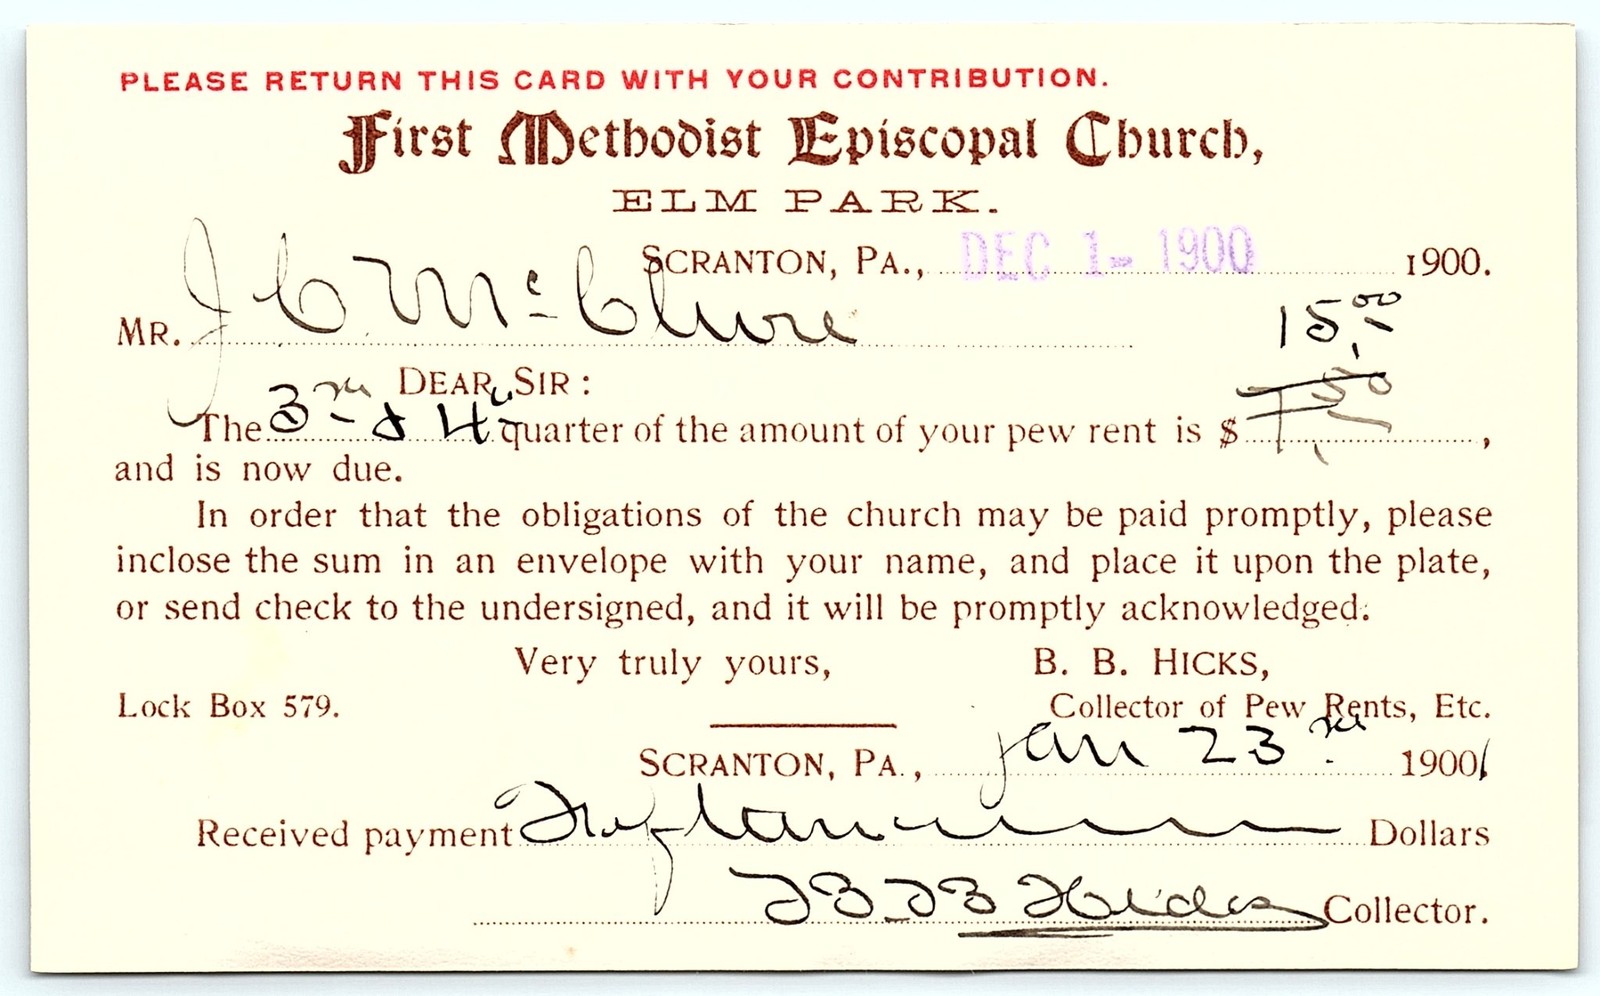 PLEASE RETURN THIS CARD WITH YOUR CONTRIBUTION.
First Methodist Episcopal Church,
ELM PARK.
SCRANTON, PA., DEC 1- 1900 1900.
MR. J C McClure 15.00
DEAR SIR :
The 3rd & 4th quarter of the amount of your pew rent is $ 7.50,
and is now due.
In order that the obligations of the church may be paid promptly, please
inclose the sum in an envelope with your name, and place it upon the plate,
or send check to the undersigned, and it will be promptly acknowledged.
Very truly yours, B. B. HICKS,
Lock Box 579. Collector of Pew Rents, Etc.
SCRANTON, PA., Jan 23rd 19001
Received payment Dollars
B B Hicks Collector.